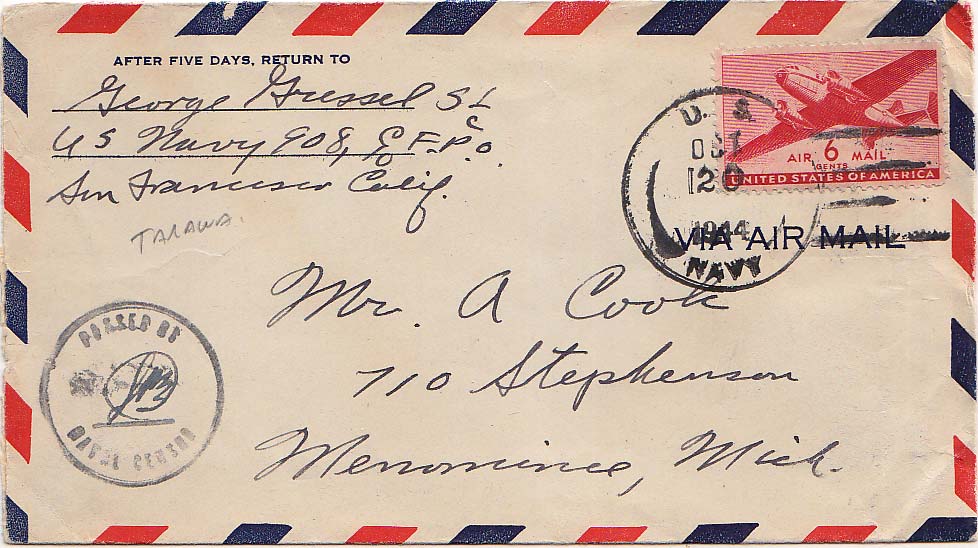 AFTER FIVE DAYS, RETURN TO
George Gressel S1c
US Navy 908, % F.P.O.
San Francisco Calif.
TARAWA.
U. S.
OCT
20
1944
NAVY
AIR 6 MAIL
CENTS
UNITED STATES OF AMERICA
VIA AIR MAIL
PASSED BY
NAVAL CENSOR
Mr. A Cook
710 Stephenson
Menominee, Mich.